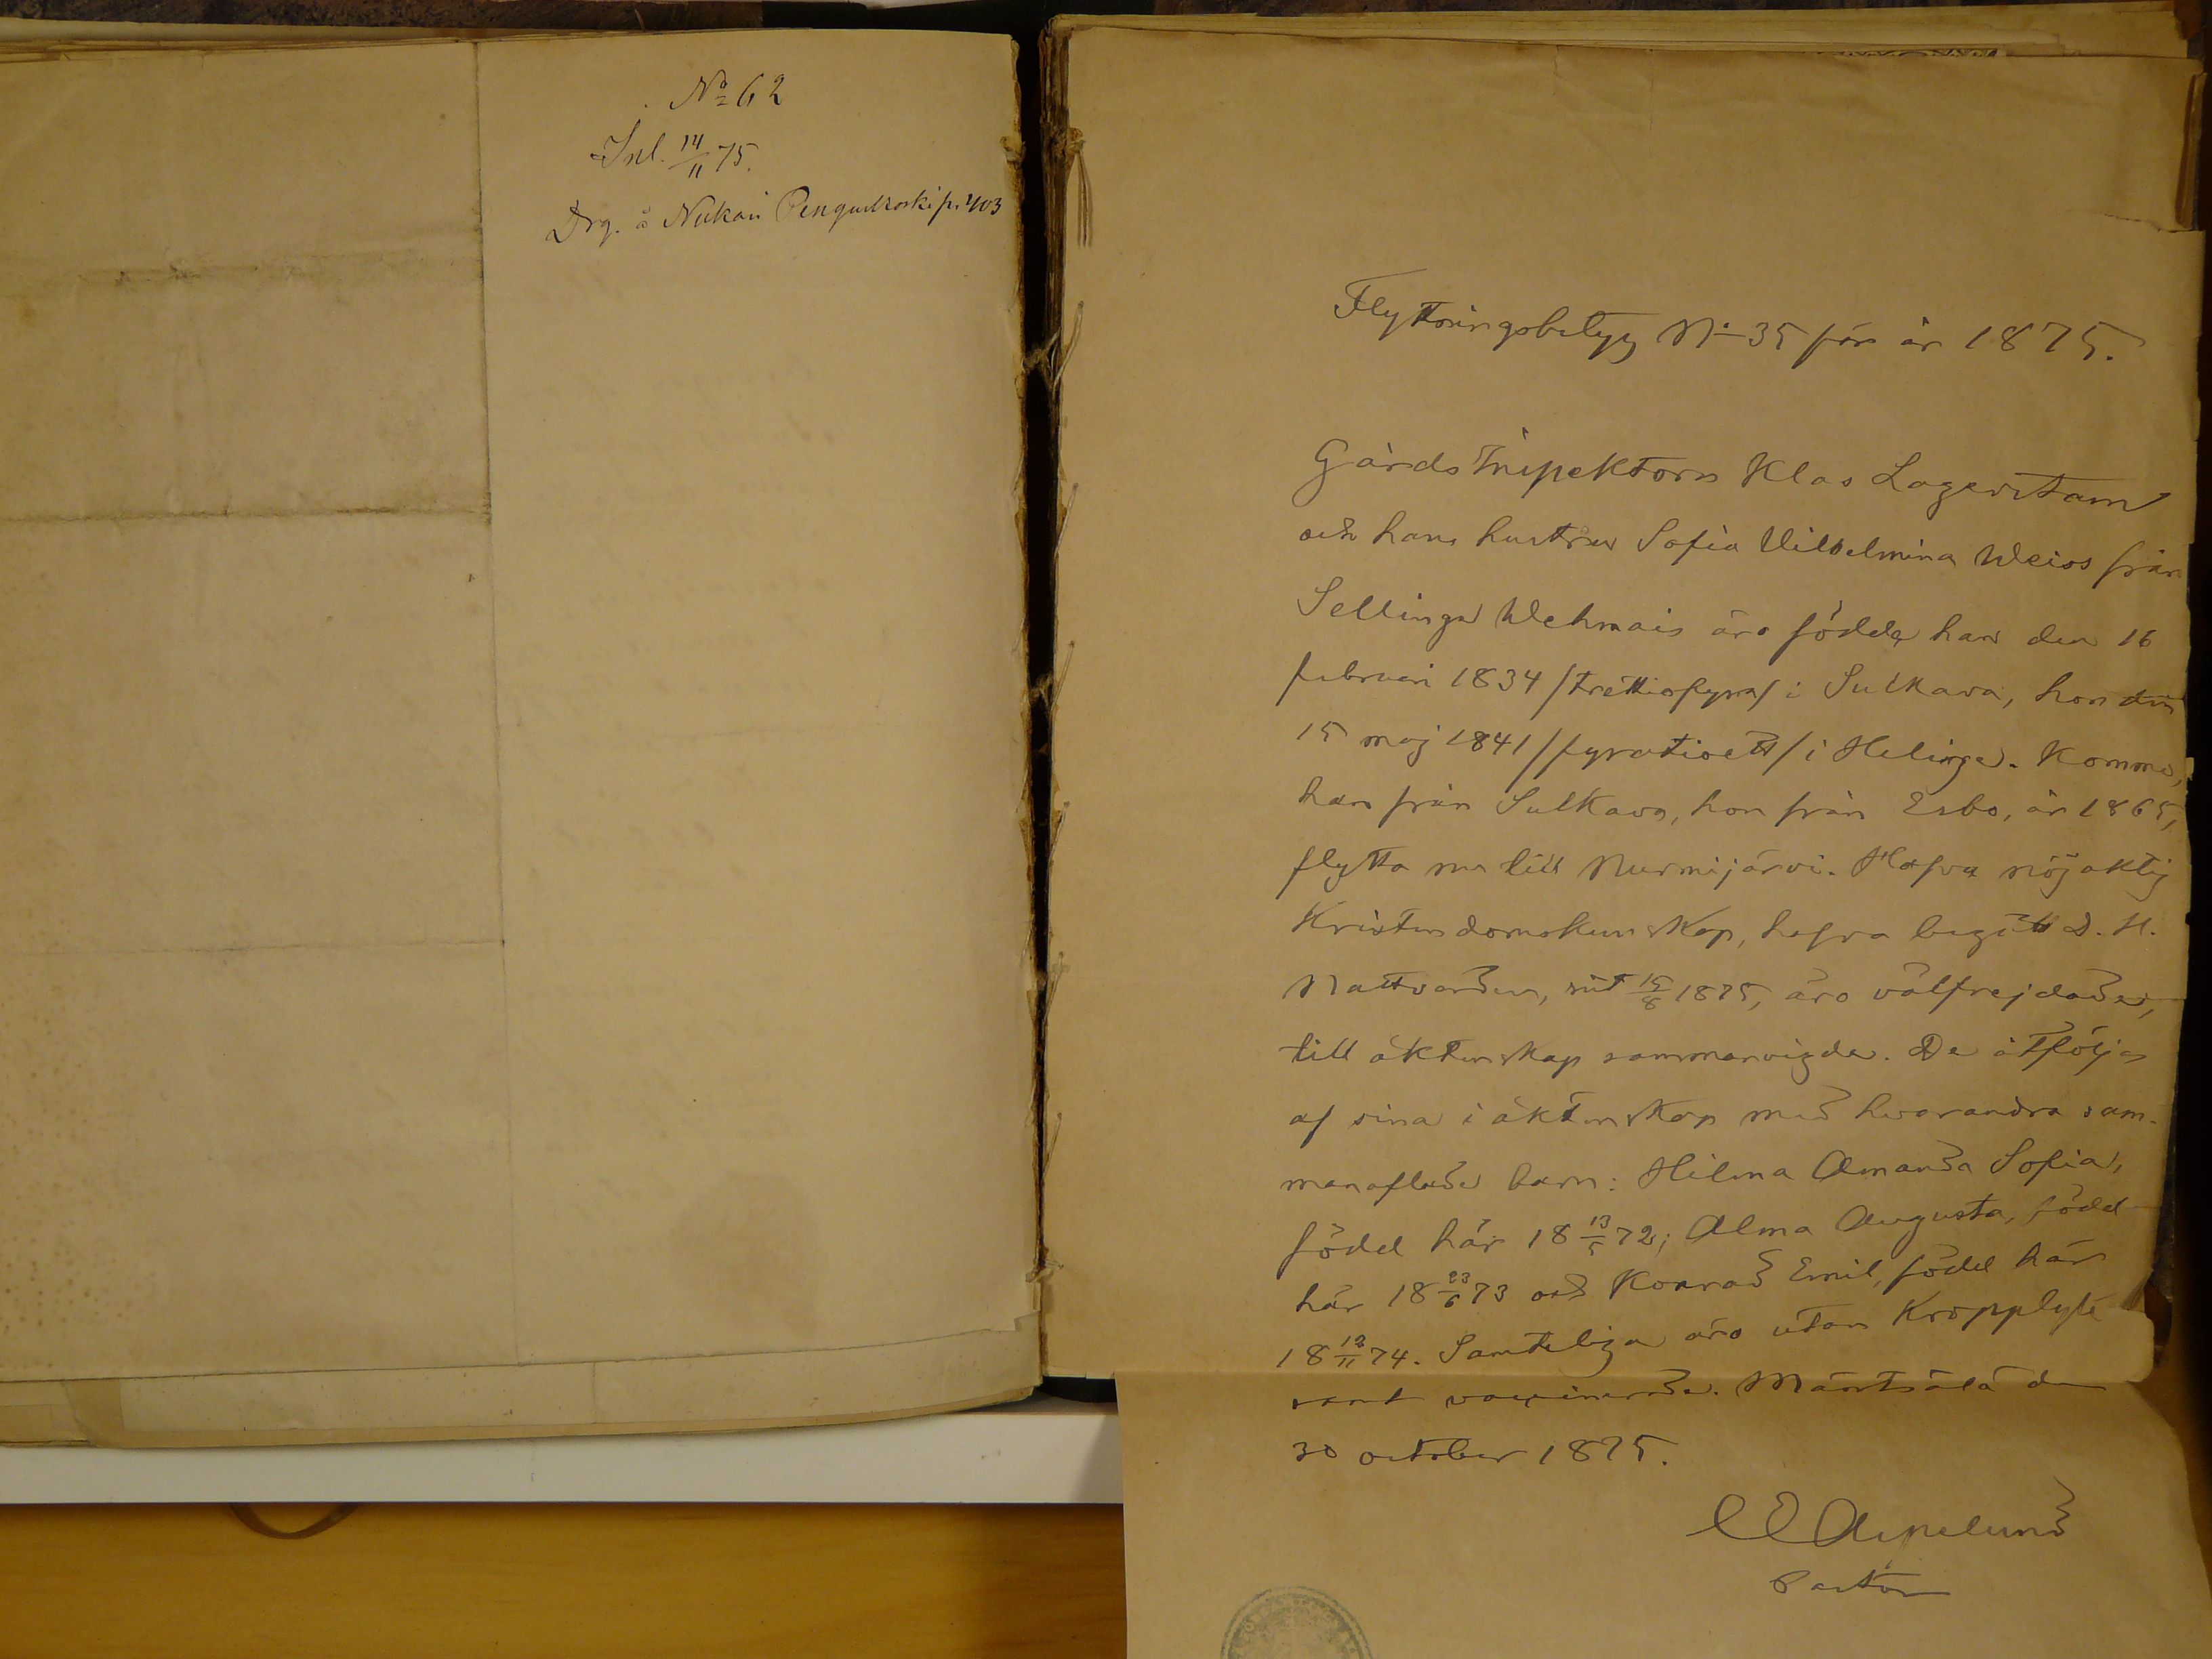 No 62
Inl. 14/11 75.
Drg. å Nukari p. 403
Flyttningsbetyg No 35 för år 1875.
Gårds Inspektorn Klas Lagerstam
och hans hustru Sofia Vilhelmina Weiss från
Sellinge Wehmais äro födde han den 16
februari 1834 /trettiofyra/ i Sulkava, hon den
15 maj 1841 /fyratioett/ i Helinge. Komma,
han från Sulkava, hon från Esbo, år 1865,
flytta nu till Nurmijärvi. Hafva nöjaktig
Kristendomskunskap, hafva begått D. H.
Nattvarden, sist 15/8 1875, äro välfrejdade,
till äktenskap sammanvigde. De åtföljas
af sina i äktenskap med hvarandra sam-
manaflade barn: Hilma Amanda Sofia,
född här 18 13/5 72; Alma Augusta, född
här 18 23/6 73 och Konrad Emil, född här
18 12/11 74. Samteliga äro utan Kropplyte
samt vaccinerade. Mäntsälä den
30 october 1875.
Aspelund
Pastor